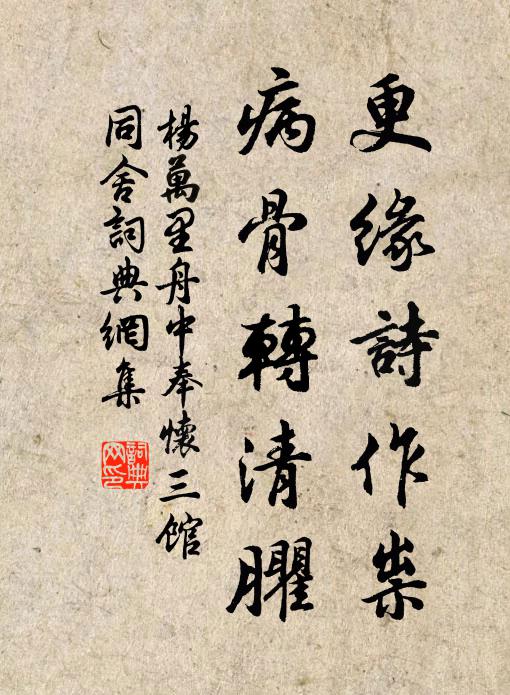 更緣詩作祟
病骨轉清臞
楊萬里舟中奉懷三館
同舍詞典網集
詞典網印